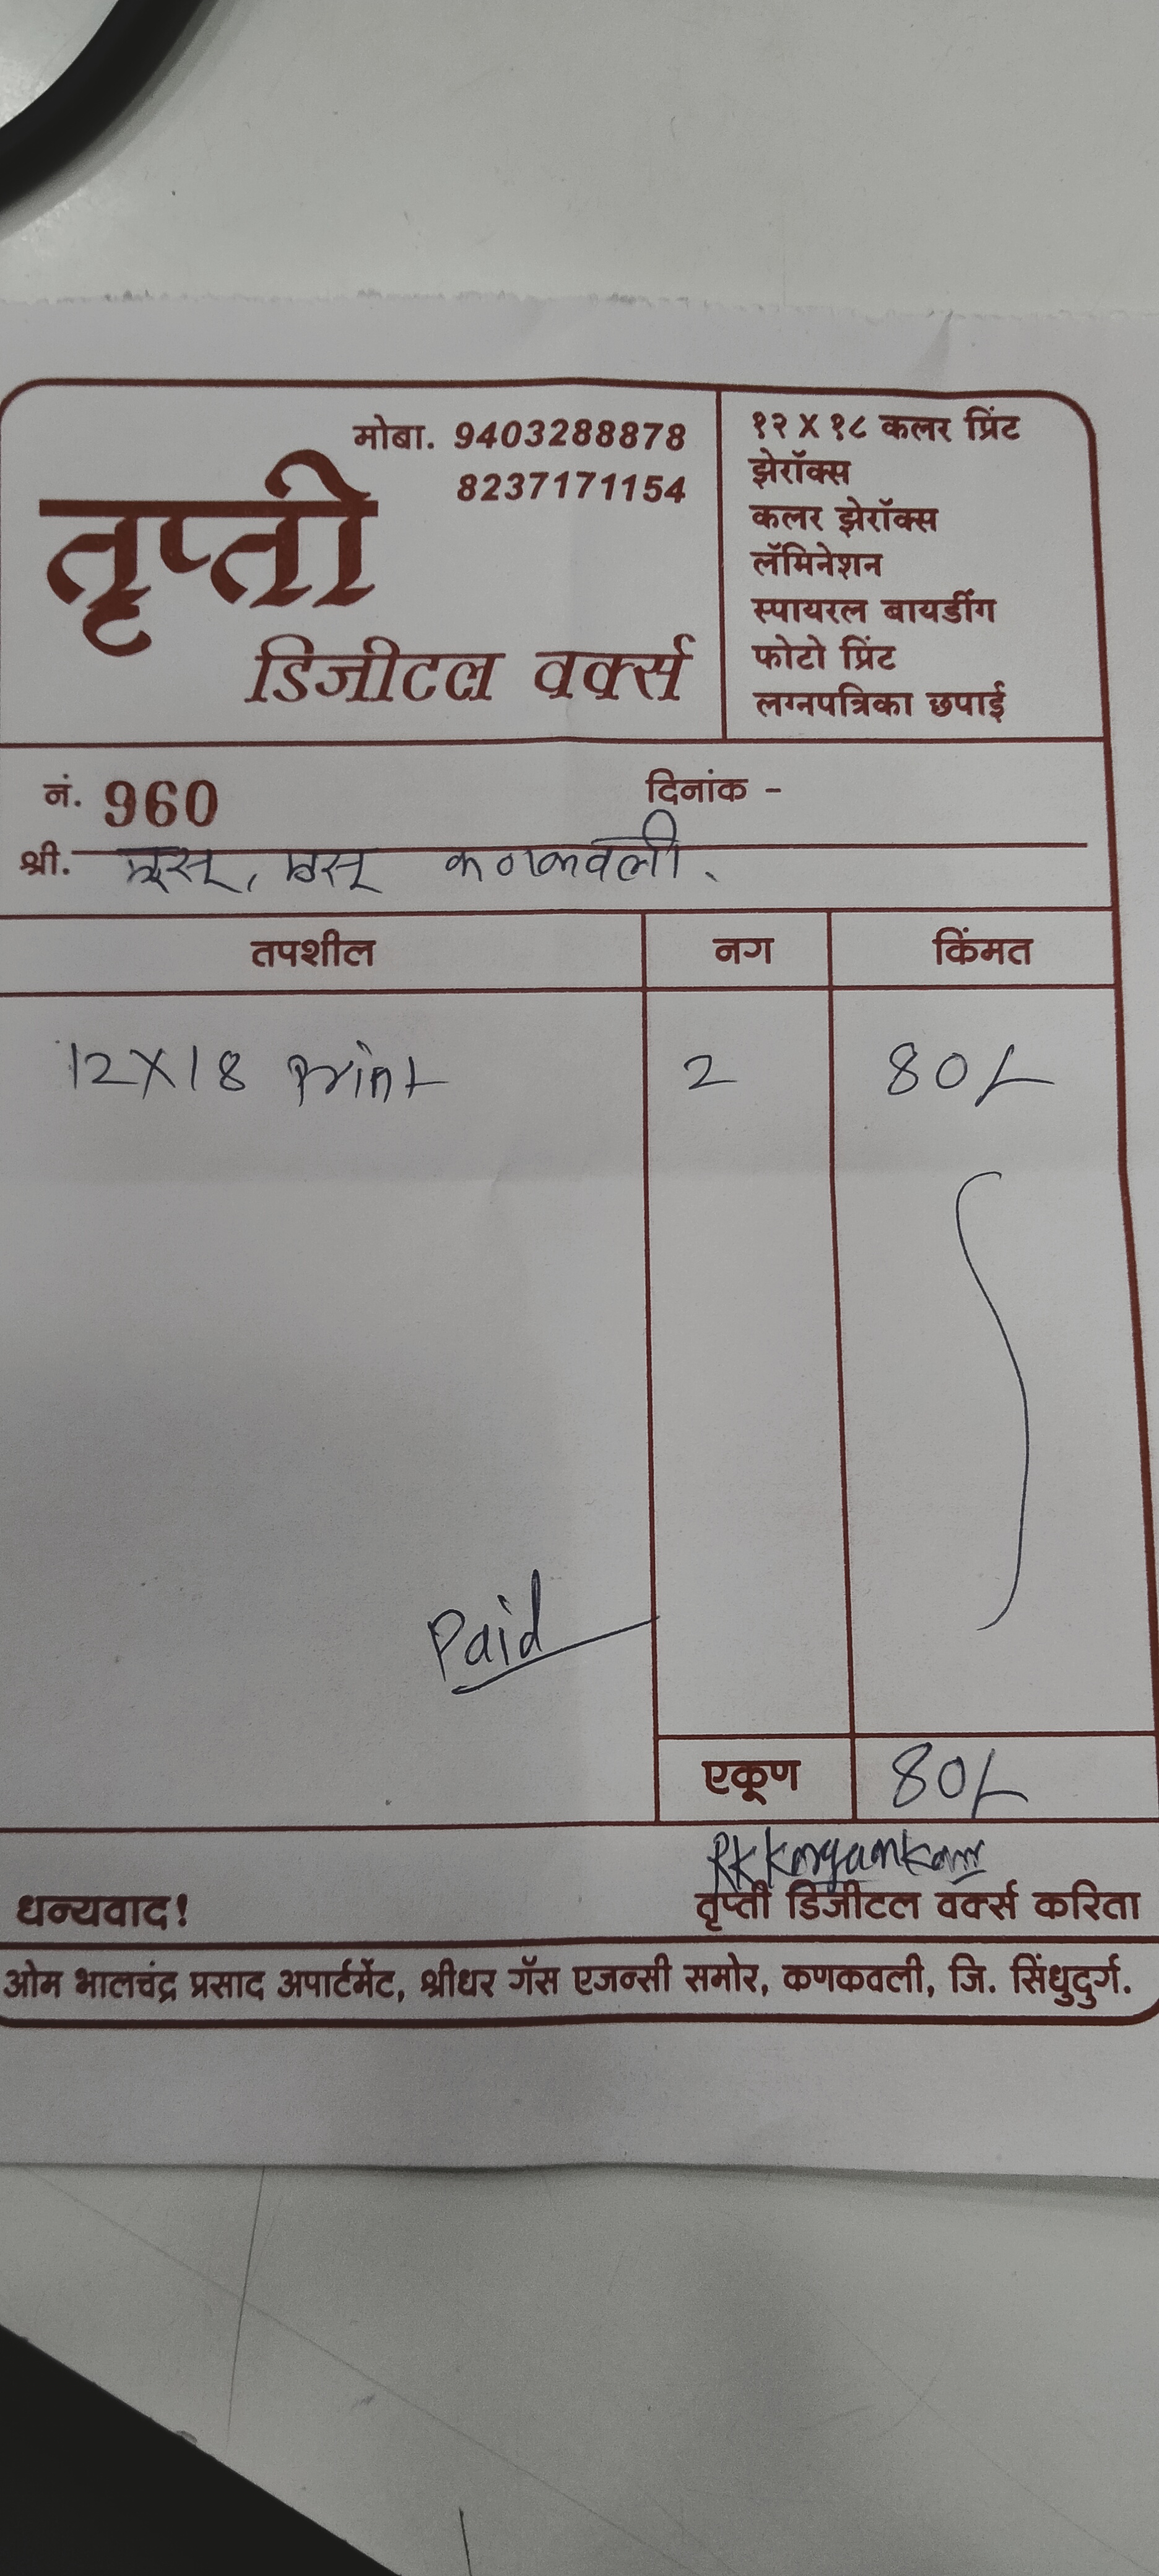 मोबा. 9403288878
8237171154
तृप्ती
डिजीटल वर्क्स
१२ X १८ कलर प्रिंट
झेरॉक्स
कलर झेरॉक्स
लॅमिनेशन
स्पायरल बायडींग
फोटो प्रिंट
लग्नपत्रिका छपाई
नं. 960 दिनांक -
श्री. एस, एस कणकवली.
तपशील नग किंमत
12X18 Print 2 80/-
Paid
एकूण 80/-
धन्यवाद!
तृप्ती डिजीटल वर्क्स करिता
ओम भालचंद्र प्रसाद अपार्टमेंट, श्रीधर गॅस एजन्सी समोर, कणकवली, जि. सिंधुदुर्ग.